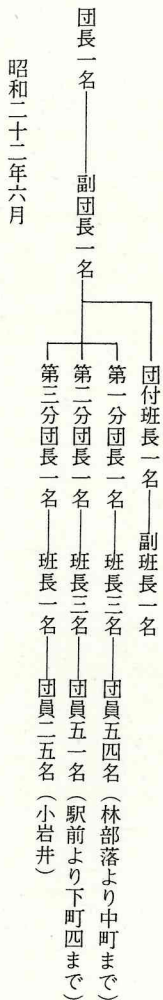 団長一名――副団長一名
団付班長一名――副班長一名
第一分団長一名――班長三名――団員五四名(林部落より中町まで)
第二分団長一名――班長三名――団員五一名(駅前より下町四まで)
第三分団長一名――班長一名――団員二五名(小岩井)
昭和二十二年六月